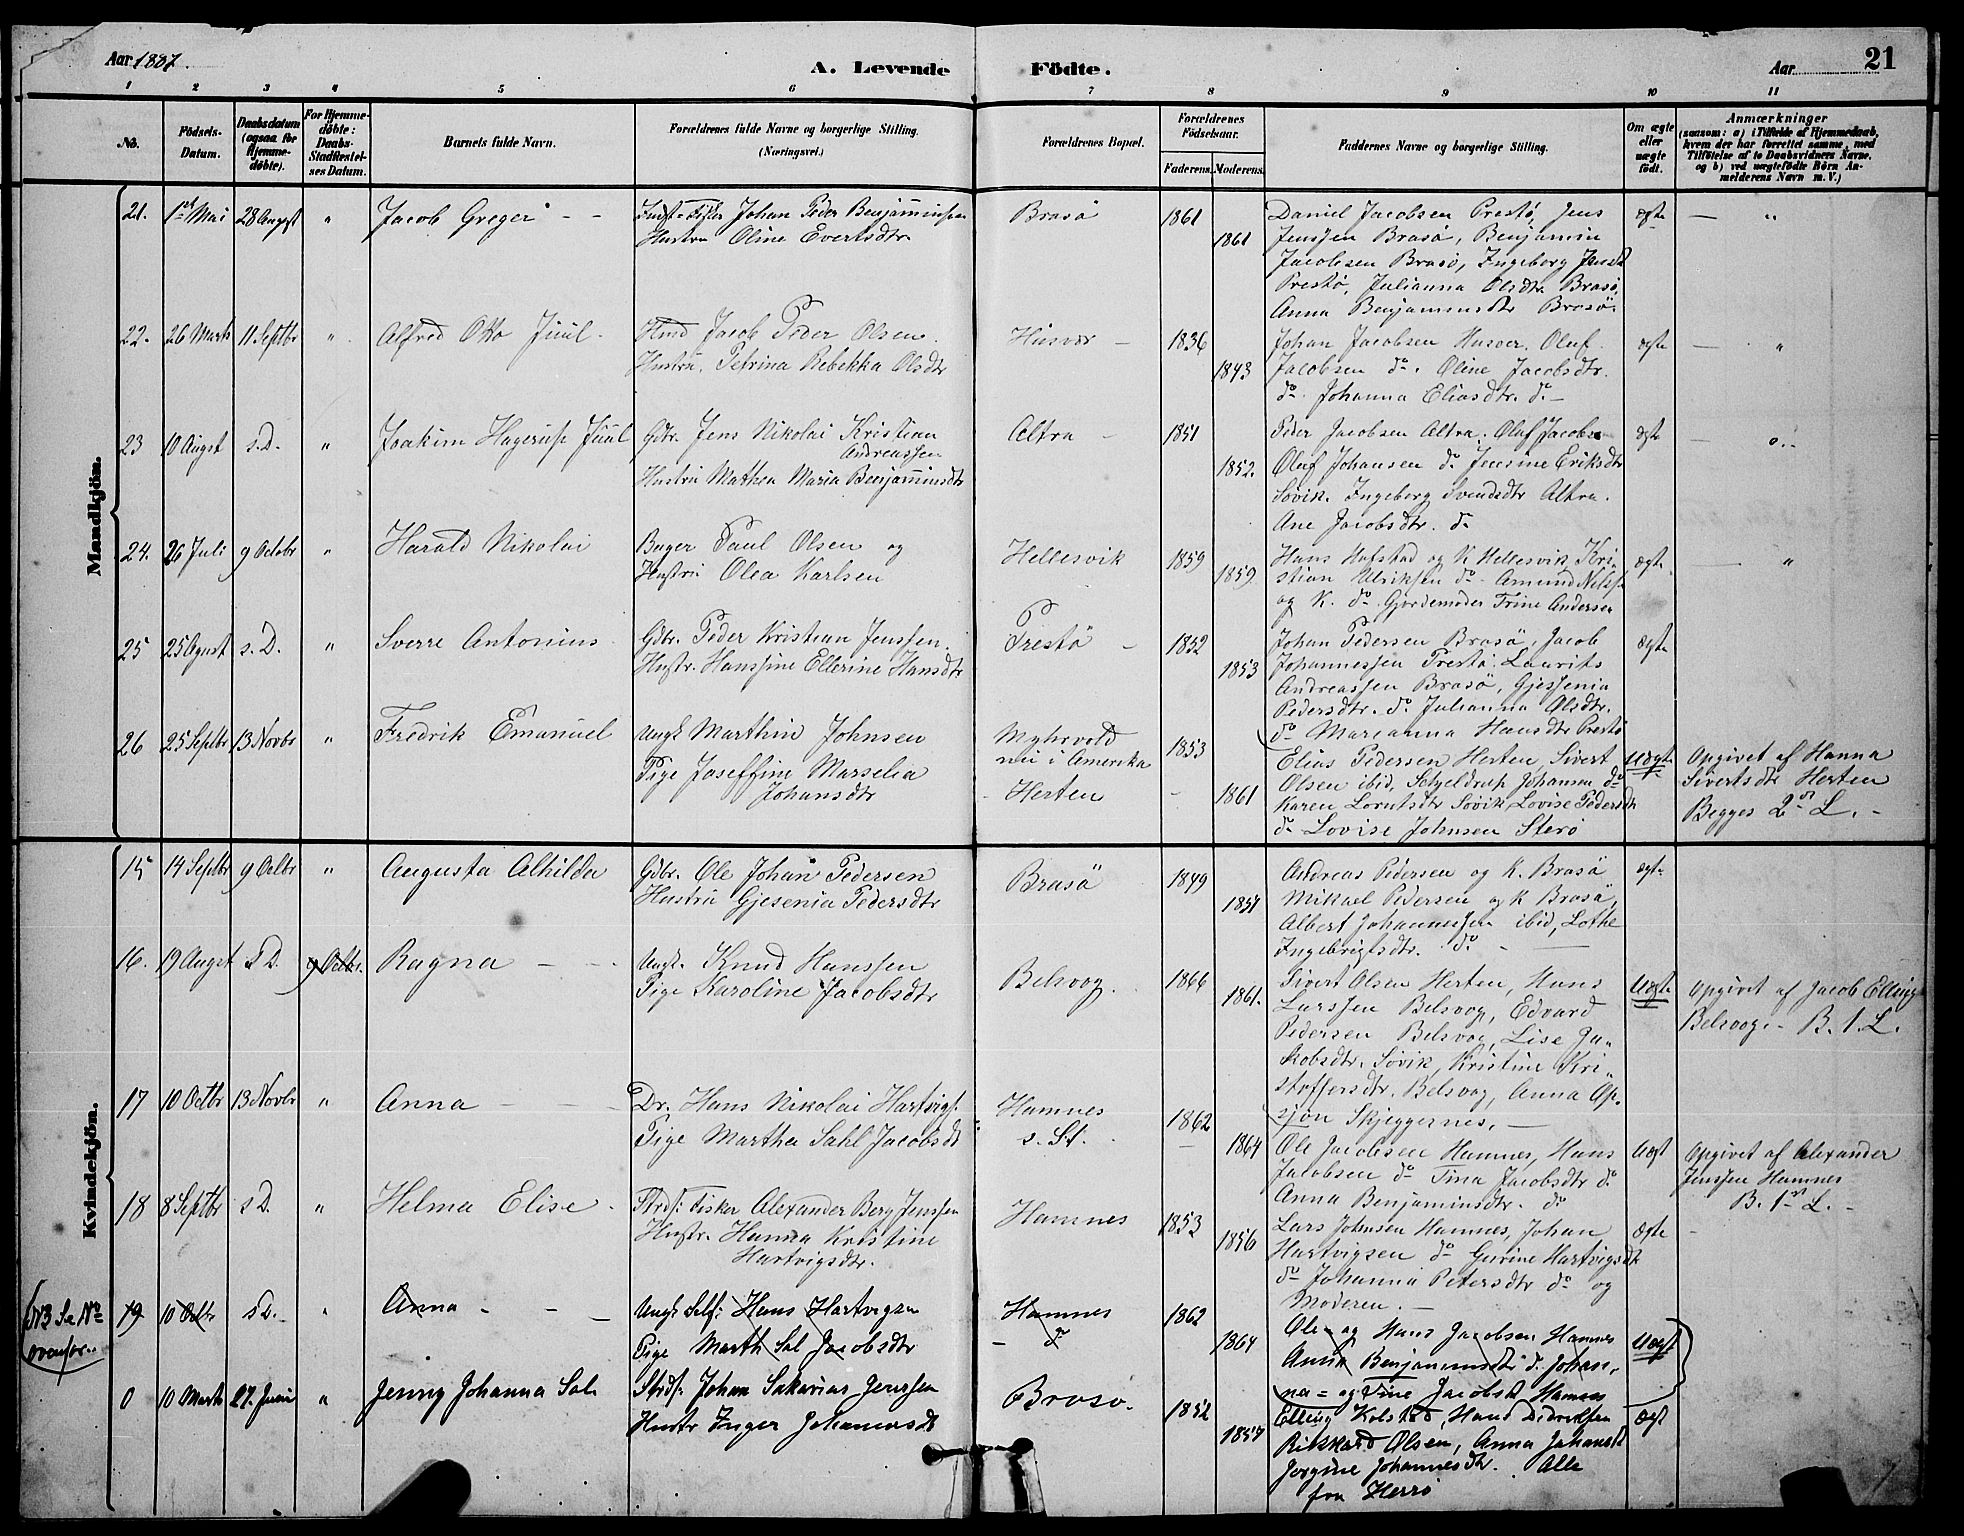 Aar 1887.
A. Levende Födte.
Aar
21
1 2 3 4 5 6 7 8 9 10 11
No.
Födsels-
Datum.
Daabsdatum
(ogsaa for
Hjemme-
döbte).
For Hjemme-
döbte:
Daabs-
Stadfæstel-
ses Datum.
Barnets fulde Navn.
Forældrenes fulde Navne og borgerlige Stilling.
(Næringsvei.)
Forældrenes Bopæl.
Forældrenes
Födselsaar.
Faderens. Moderens.
Faddernes Navne og borgerlige Stilling.
Om ægte
eller
uægte
födt.
Anmærkninger
(saasom: a) i Tilfælde af Hjemmedaab,
hvem der har forrettet samme, med
Tilföielse af to Daabsvidners Navne,
og b) ved uægtefödte Börn An-
melderens Navn m. V.)
Mandkjön.
21. 1st Mai 28 Augst " Jacob Greger
Johan Peder Benjaminsen
Hustru Oline Evertsdtr
Brasö 1861 1861
Daniel Jacobsen Prestö, Jens
Jenssen Brasö, Benjamin
Jacobsen Brasö, Ingeborg Jensd
Prestö, Julianna Olsdtr Brasö,
Anna Benjaminsdtr Brasö.
ægte — "
22. 26 Marts 11 Septbr " Alfred Otto Juul
Jacob Peder Olsen.
Hustru. Petrina Rebekka Olsdtr
Husvær — 1836 1843
Johan Jacobsen Husvær. Oluf
Jacobsen do. Oline Jacobsdtr.
do Johanna Eliasdtr. do —
ægte — "
23 10 Augst s.D. " Joakim Hagerup Juul
Gdbr. Jens Nikolai Kristian
Andreassen
Hustru Mathea Maria Benjaminsdtr
Altra — 1851 1852.
Peder Jacobsen Altra. Oluf Jacobs
Oluf Johansen do Jensine Eriksdtr
Søvik. Ingeborg Svendsdtr Altra.
Ane Jacobsdtr. do
ægte
24. 26 Juli 9 Octobr " Harald Nikolai
Bager Paul Olsen og
Hustru Olea Karlsen
Hellesvik 1859 1859
Hans Hofstad og K Hellesvik, Kri-
stian Ulriksen do Amund Nilss.
og K. do Gjordemoder Trine Andersen
ægte. — "
25 25 Agust s.D. " Sverre Antonius
Gdbr. Peder Kristian Jenssen.
Hustr. Hanssine Ellerine Hansdtr
Prestö — 1852 1853
Johan Pedersen Brasö, Jacob
Johannessen Prestö. Laurits
Andreassen Brasö, Gjessenia
Pedersdtr. do Julianna Olsdtr.
do Marianna Hansdtr Prestö
ægte
26 25 Septbr 13 Novbr " Fredrik Emanuel
Ungk Marthin Johnsen
Pige Joseffine Marselia
Johansdtr
Myhrvold
nu i Amerika
Herten
1853 1861
Elias Pedersen Herten, Sivert
Olsen ibid, Schjeldrup Johansen do
Karen Lorntsdtr Søvik, Lovise Pedersdtr
do Lovise Johnsen Sterø
Uægte
Opgivet af Hanna
Sivertsdtr Herten
Begges 2det L.
Kvindekjön.
15 14 Septbr 9 Octbr " Augusta Alhilda
Gdbr. Ole Johan Pedersen
Hustru Gjesenia Pedersdtr
Brasö 1849 1851
Andreas Pedersen og K. Brasö
Mikael Pedersen og K Brasö,
Albert Johannessen ibid, Lothe
Ingebrigtsdtr. do
ægte
16. 19 Augst s D. 9 Octbr. Ragna
Ungk. Knud Hanssen
Pige Karoline Jacobsdtr
Belsvog. 1866 1861.
Sivert Olsen Herten, Hans
Larssen Belsvog, Edvard
Pedersen Belsvog, Lise Ja-
kobsdtr. Søvik, Kristine Kri-
stoffersdtr. Belsvog, Anna Op-
sjøn Skjeggernes.
Uægte
Opgivet af Jacob Elling
Belsvog. — B. 1. L.
17 10 Octbr 13 Novbr " Anna
Dr. Hans Nikolai Hartvigs.
Pige Martha Sahl Jacobsdt
Hamnes
s. St.
1862 1864
Ole Jacobsen Hamnes, Hans
Jacobsen do Tina Jacobsdtr do
Anna Benjaminsdtr. do
Uægt
Opgivet af Alexander
Jenssen Hamnes
B. 1ste L.
18 8 Septbr s D. " Helma Elise
Strds: Fisker Alexander Berg Jenssen
Hustr. Hanna Kristine
Hartvigsdtr.
Hamnes 1853 1856
Lars Johnsen Hamnes, Johan
Hartvigsen do Gurine Hartvigsdtr
do Johanna Petersdtr do og
Moderen.
ægte
(NB Se No
ovenfor.
19 10 Octbr s D. " Anna
Ungk Self: Hans Hartvigsen
Pige Marth Sal Jacobsdtr
Hamnes
— do
1862 1864
Ole og Hans Jacobsen Hamnes
Anna Benjaminsdtr do Johan,
na = og Tine Jacobsd Hamnes
Uægt
0 10 Marts 27. Juni " Jenny Johanna Sal
Strds: Johan Sakarias Jenssen
Hustr Inger Johannesdt
Brasø. 1852 1857
Elling Kolstad, Hans Didriksen
Rikkard Olsen, Anna Johansd
Jorgine Johannesdtr. Alle
fra Herrø
ægt